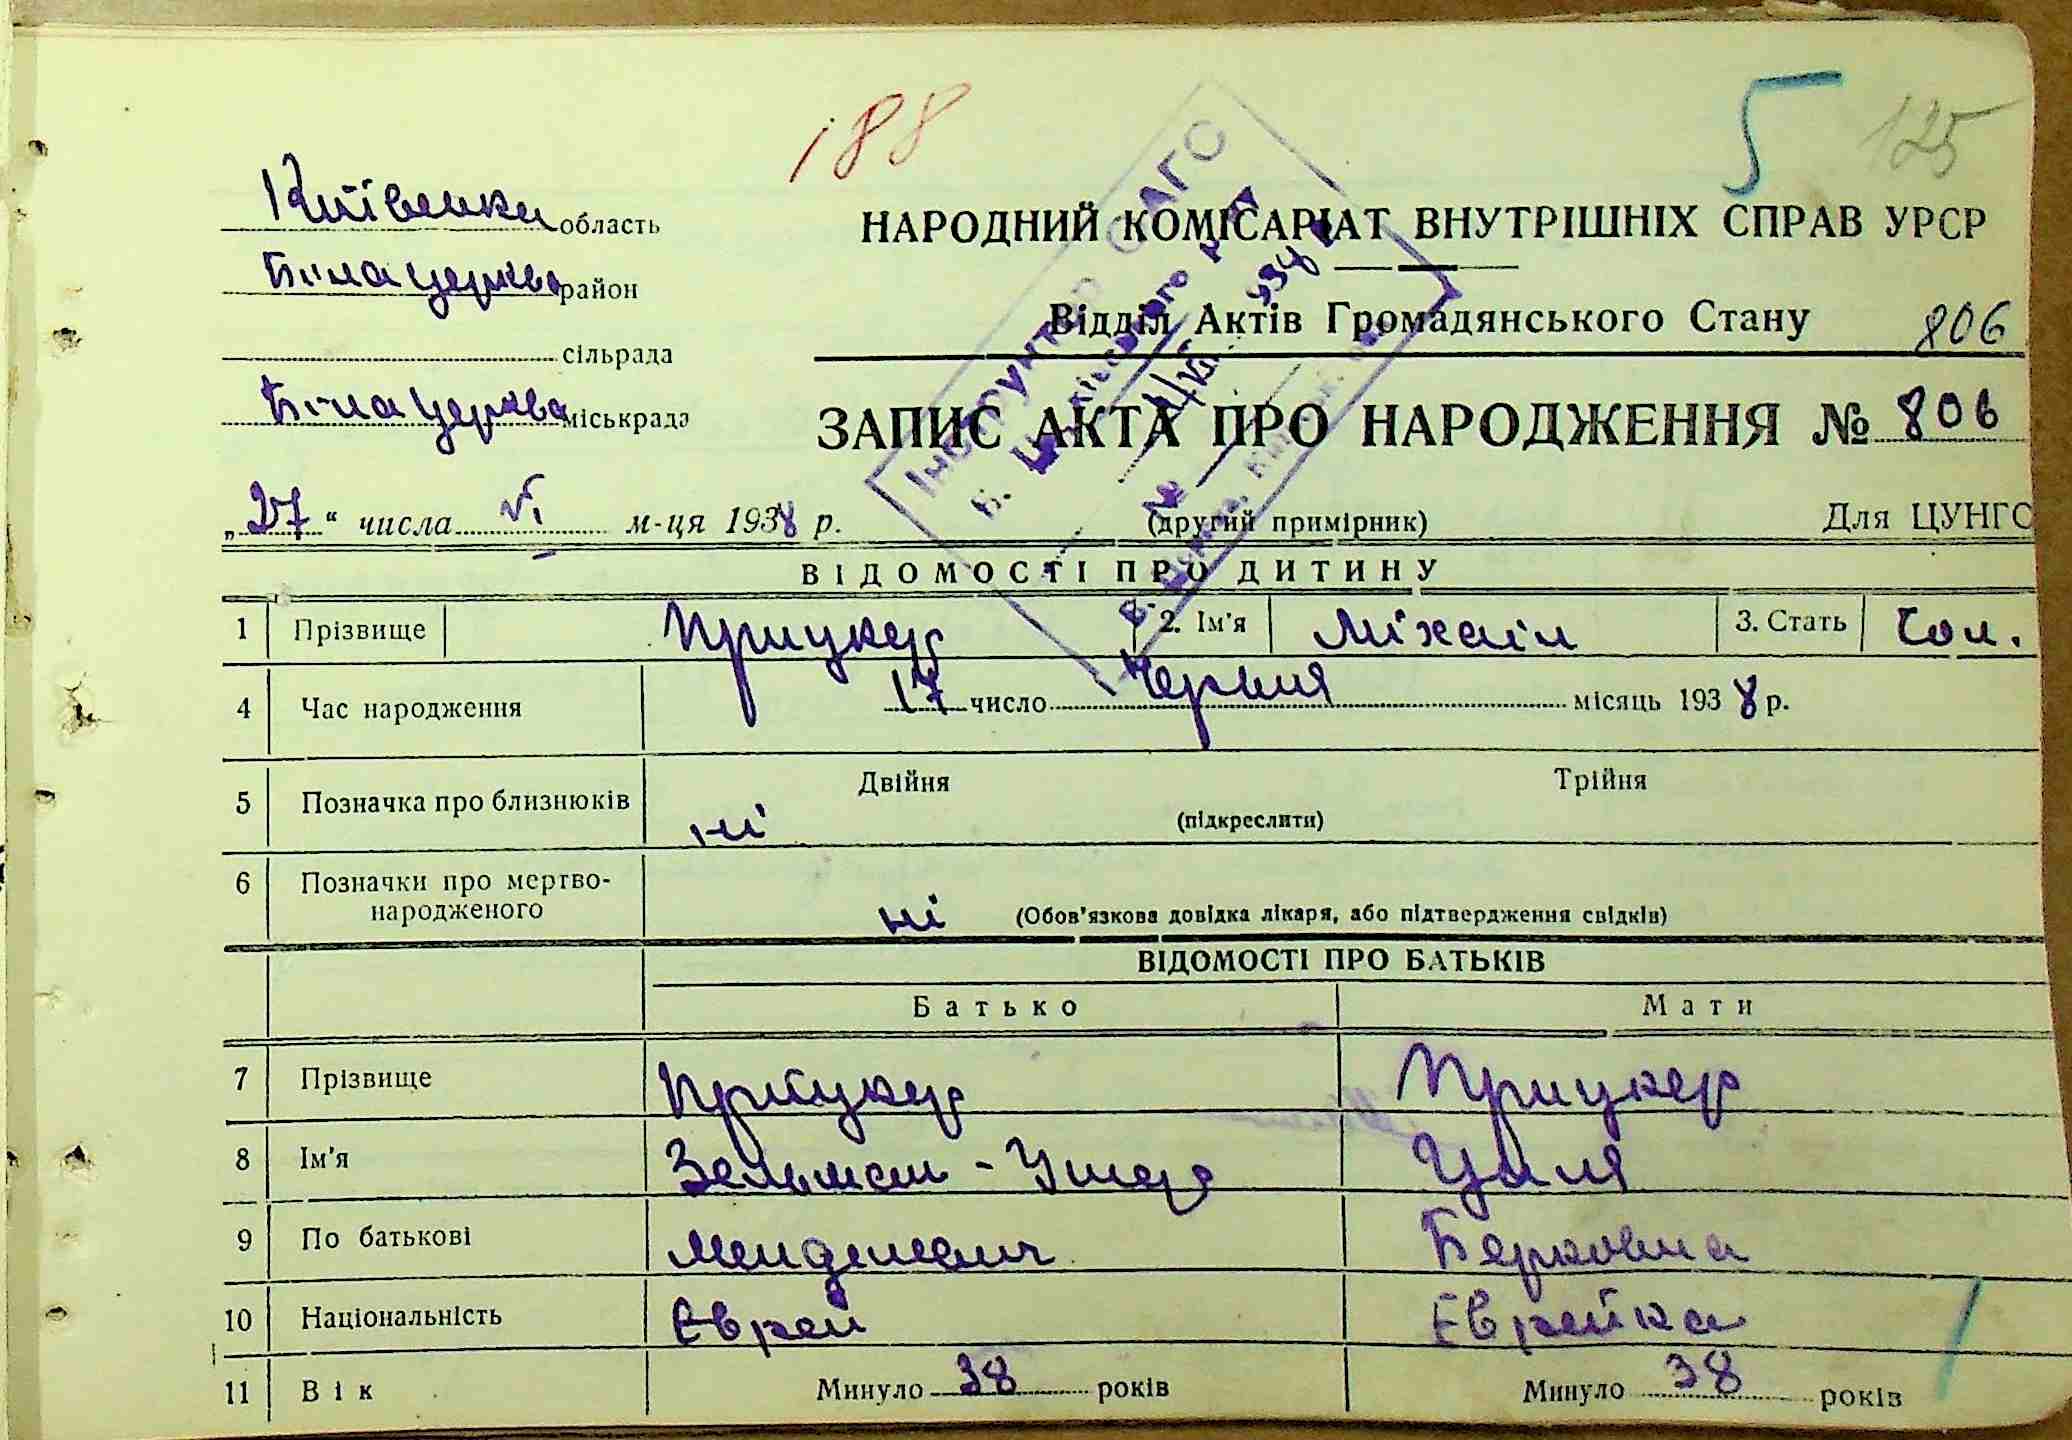 188
5
125
Київська область
НАРОДНИЙ КОМІСАРІАТ ВНУТРІШНІХ СПРАВ УРСР
Біла Церква район
Відділ Актів Громадянського Стану
806
сільрада
Біла Церква міськрада
ЗАПИС АКТА ПРО НАРОДЖЕННЯ № 806
Інструктор САГО
„27“ числа VI м-ця 1938 р.
(другий примірник)
Для ЦУНГО
ВІДОМОСТІ ПРО ДИТИНУ
1 Прізвище Прицкер 2. Ім'я Міхаіл 3. Стать Чол.
4 Час народження 17 число Червня місяць 1938 р.
5 Позначка про близнюків ні Двійня Трійня
(підкреслити)
6 Позначки про мертво-
народженого ні (Обов'язкова довідка лікаря, або підтвердження свідків)
ВІДОМОСТІ ПРО БАТЬКІВ
Батько Мати
7 Прізвище Прицкер Прицкер
8 Ім'я Зельман-Ушер Циля
9 По батькові Менделевич Берковна
10 Національність Еврей Еврейка
11 Вік Минуло 38 років Минуло 38 років